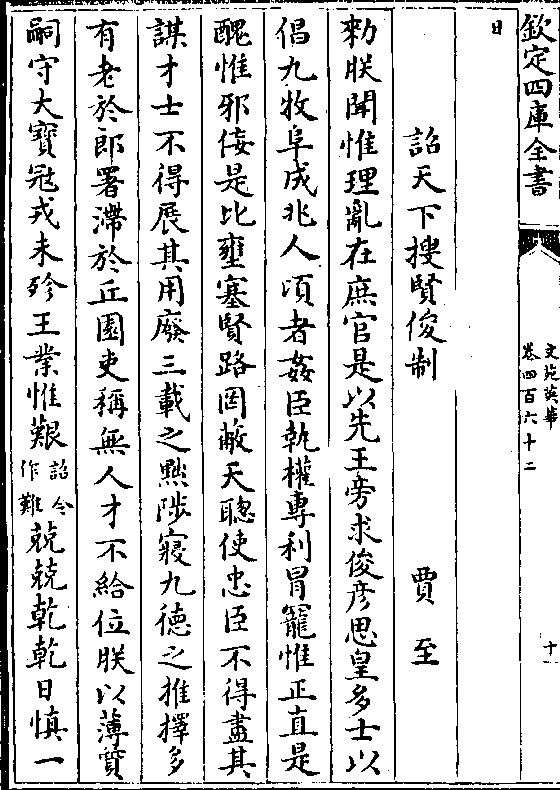 欽定四庫全書
文苑英華
卷四百六十二
十一
日
詔天下搜賢俊制　賈至
勑朕聞惟理亂在庶官是以先王旁求俊彦思皇多士以
倡九牧阜成兆人頃者姦臣執權專利冒寵惟正直是
醜惟邪佞是比壅塞賢路罔蔽天聰使忠臣不得盡其
謀才士不得展其用廢三載之黜陟寢九德之推擇多
有老於郎署滯於丘園吏稱無人才不給位朕以薄質
嗣守大寶冦戎未殄王業惟艱詔令作難兢兢乾乾日慎一